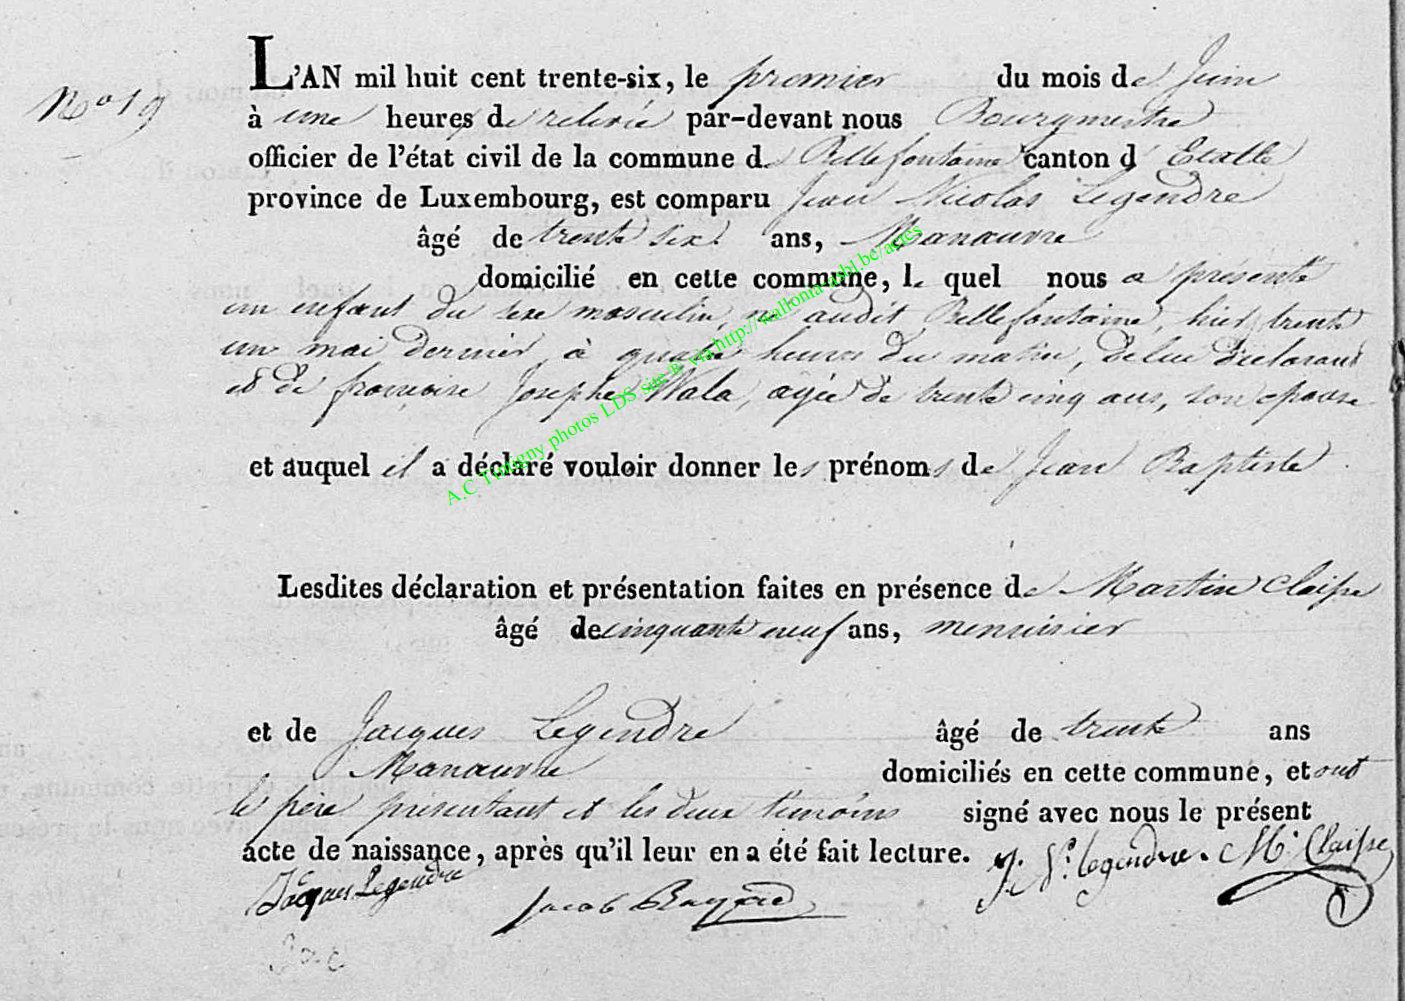 L'AN mil huit cent trente-six, le premier du mois de Juin
No 19
à une heures de relevée par-devant nous Bourgmestre
officier de l'état civil de la commune de Bellefontaine canton d'Etalle
province de Luxembourg, est comparu Jean Nicolas Legendre
âgé de trente six ans, Manœuvre
domicilié en cette commune, le quel nous a présenté
un enfant du sexe masculin, né audit Bellefontaine, hier trente
un mai dernier, à quatre heures du matin, de lui déclarant
et de françoise Josephe Wala, agée de trente cinq ans, son epouse
et auquel il a déclaré vouloir donner les prénoms de Jean Baptiste
Lesdites déclaration et présentation faites en présence de Martin Claisse
âgé de cinquante neuf ans, menuisier
et de Jacques Legendre âgé de trente ans
Manœuvre domiciliés en cette commune, et ont
le père présentant et les deux témoins signé avec nous le présent
acte de naissance, après qu'il leur en a été fait lecture. J. N. legendre. M. Claisse
Jacques Legendre Jacob
A.C Tintigny photos LDS site B. via http://wallonia-asbl.be/actes